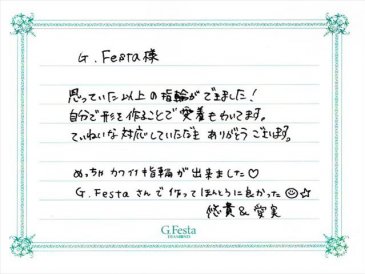 G.Festa様
思っていた以上の指輪ができました!
自分で形を作ることで愛着もわいてます。
ていねいな対応していただき ありがとうございます。
めっちゃ カワイイ指輪が出来ました♡
G.Festaさんで作ってほんとうに良かった☺☆
悠貴&愛実
G.Festa